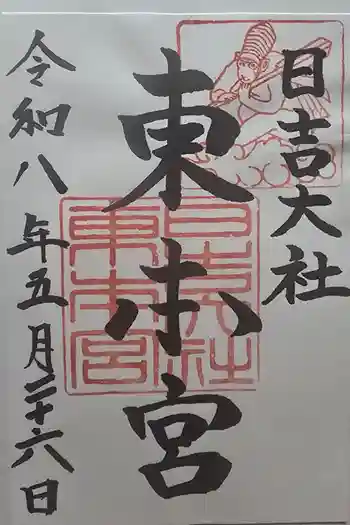 日吉大社
東本宮
令和八年五月二十六日
日吉大社
東本宮